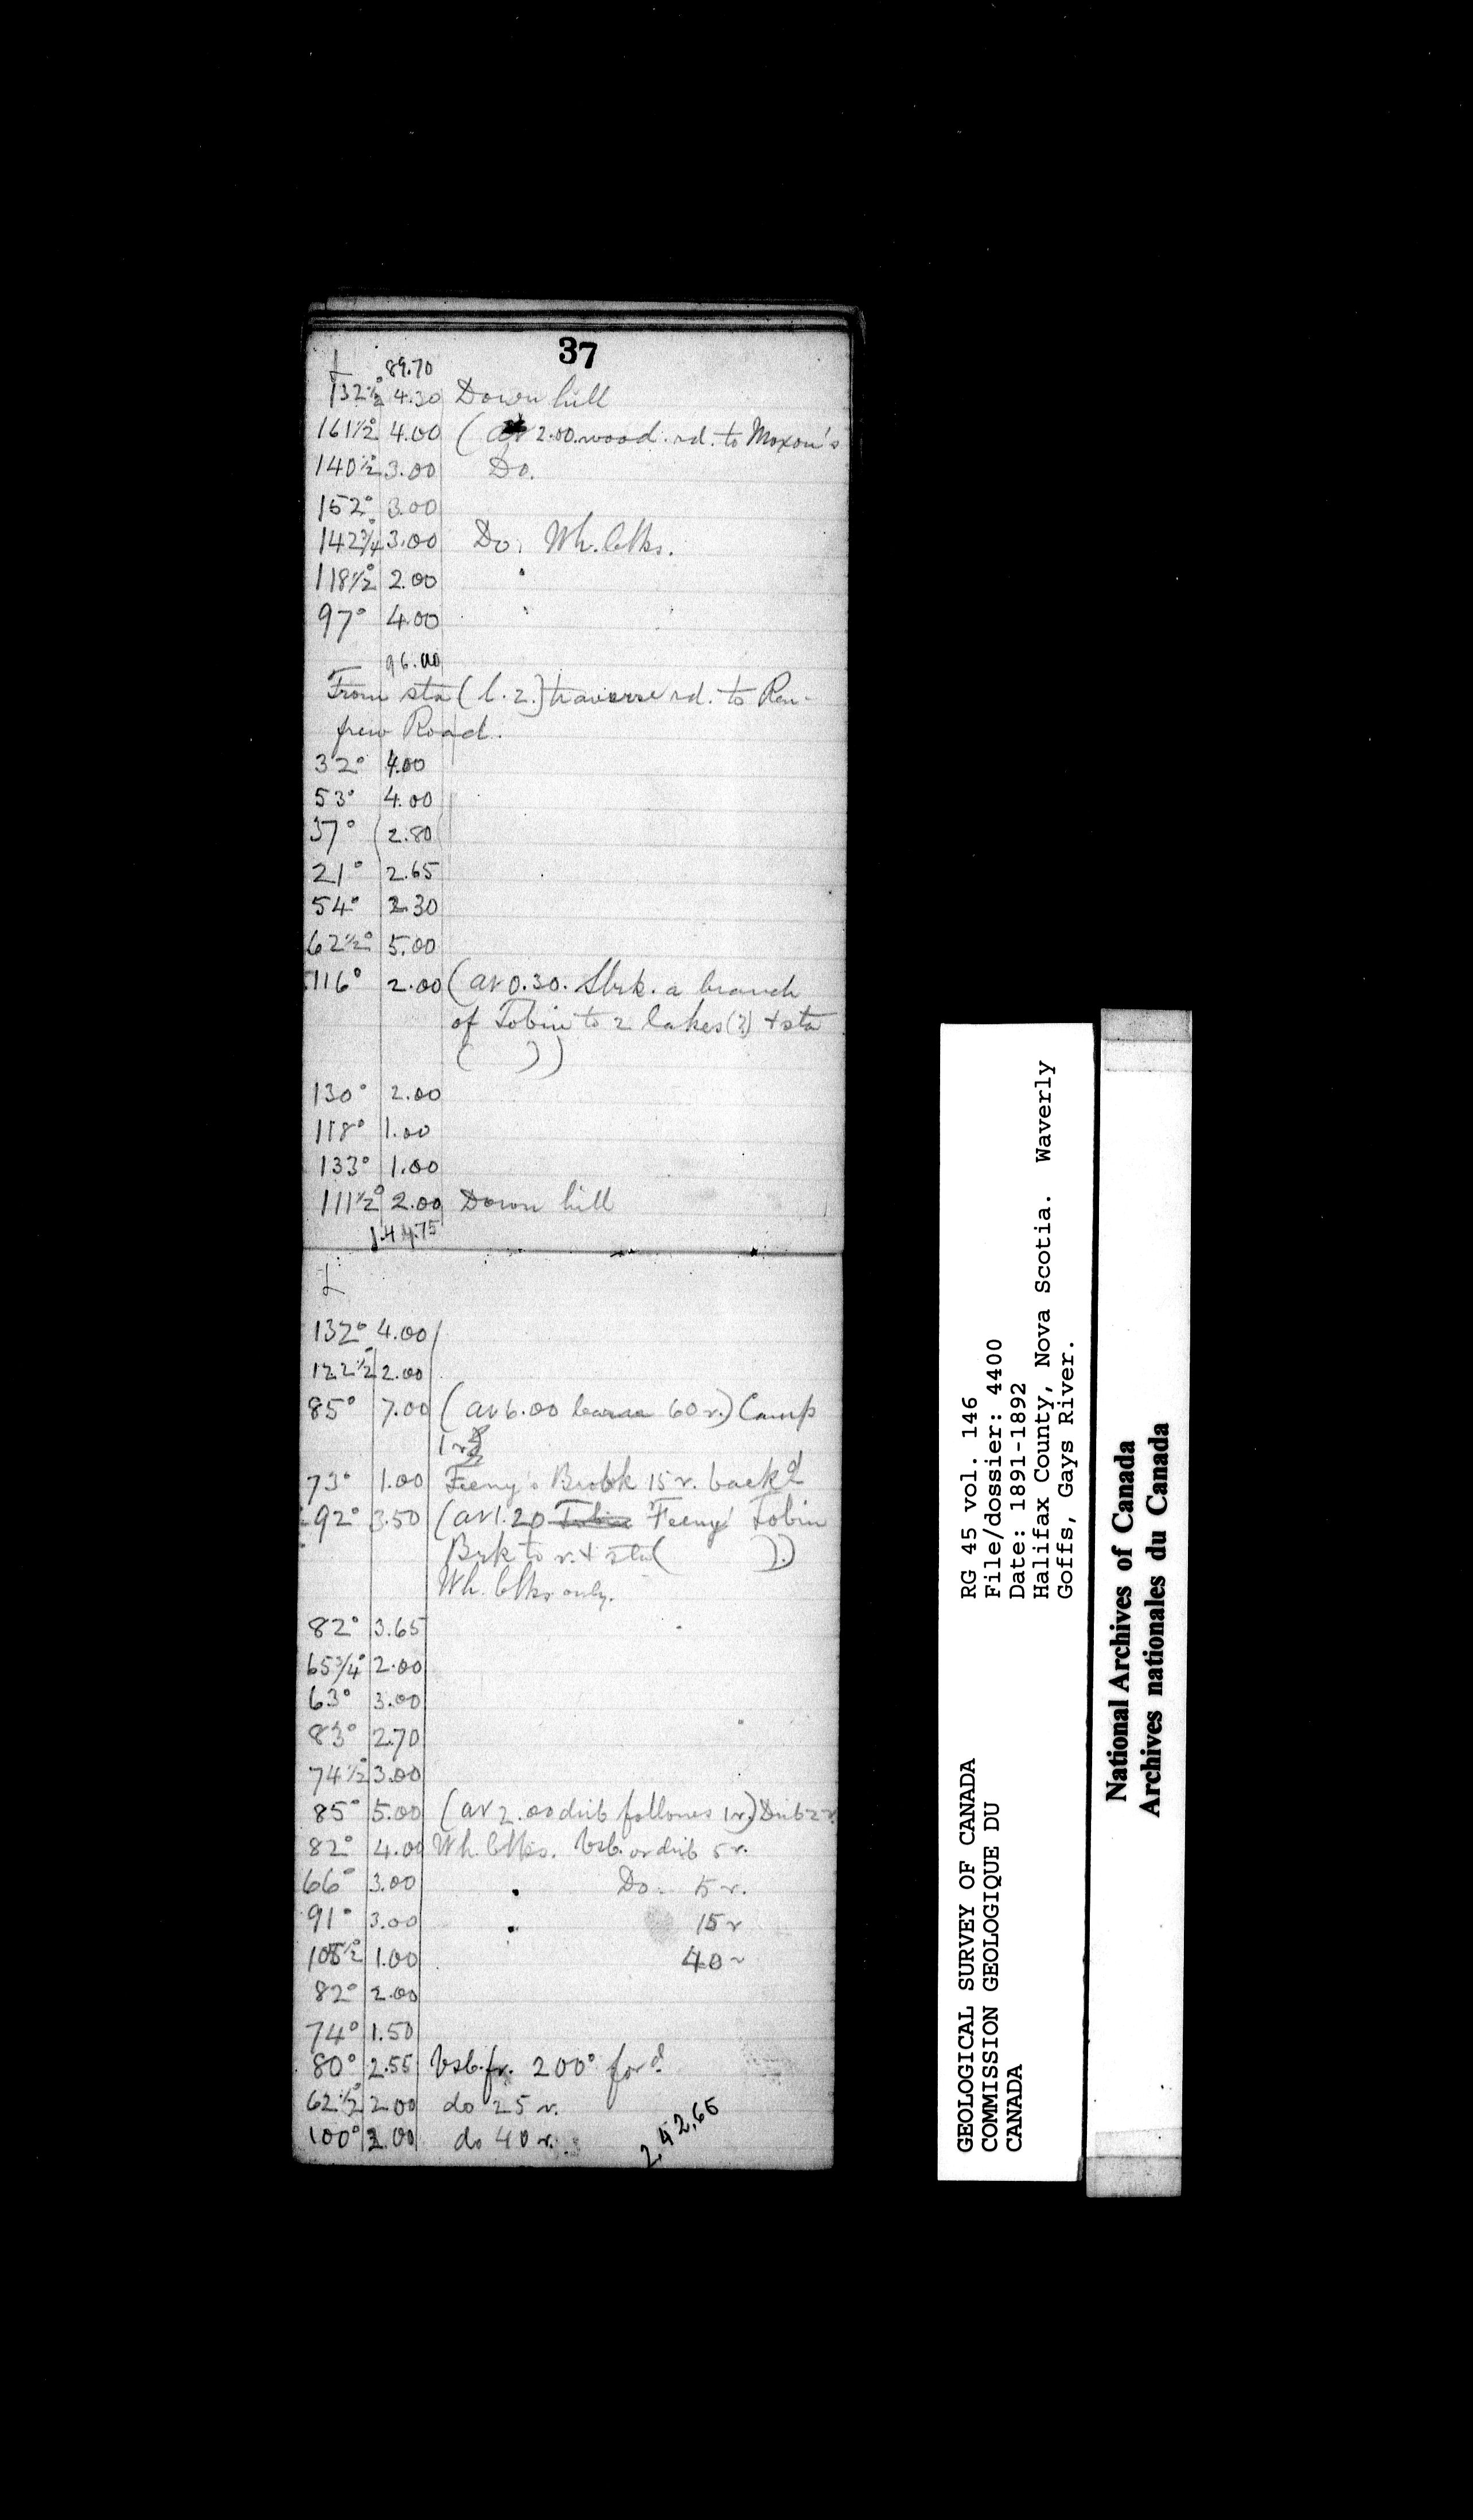 37
89.70
132½° 4.30 Down hill
161½° 4.00 (at 2.00 wood. rd. to Moxon's
140½° 3.00 Do.
152° 3.00
142¾° 3.00 Do. Wh. blks.
118½° 2.00 "
97° 4.00 "
96.00
From sta (l.2.) traverse rd. to Ren-
frew Road.
32° 4.00
53° 4.00
37° 2.80
21° 2.65
54° 2.30
62½° 5.00
116° 2.00 (at 0.30. Sbrk. a branch
of Tobin to 2 lakes (?) + sta
( ))
130° 2.00
118° 1.00
133° 1.00
111½° 2.00 Down hill
144.75
132° 4.00
122½° 2.00
85° 7.00 (at 6.00 60 r.) Camp
1 r
73° 1.00 Feeny's Brook 15 r. back d
92° 3.50 (at 1.20 Tobin Feeny Tobin
Brk to r. + sta ( ))
Wh. blks only.
82° 3.65
65¾° 2.00
63° 3.00
83° 2.70
74½° 3.00
85° 5.00 (at 2.00 drib follows 1 r.) Drib 2 r.
82° 4.00 Wh. blks. Vsb. or drib 5 r.
66° 3.00 " Do. 5 r.
91° 3.00 " 15 r
105½° 1.00 40 r
82° 2.00
74° 1.50
80° 2.55 Vsb. fr. 200° for d.
62½° 2.00 do 25 r.
100° 2.00 do 40 r.
242.65
GEOLOGICAL SURVEY OF CANADA
COMMISSION GEOLOGIQUE DU
CANADA
RG 45 vol. 146
File/dossier: 4400
Date: 1891-1892
Halifax County, Nova Scotia. Waverly
Goffs, Gays River.
National Archives of Canada
Archives nationales du Canada